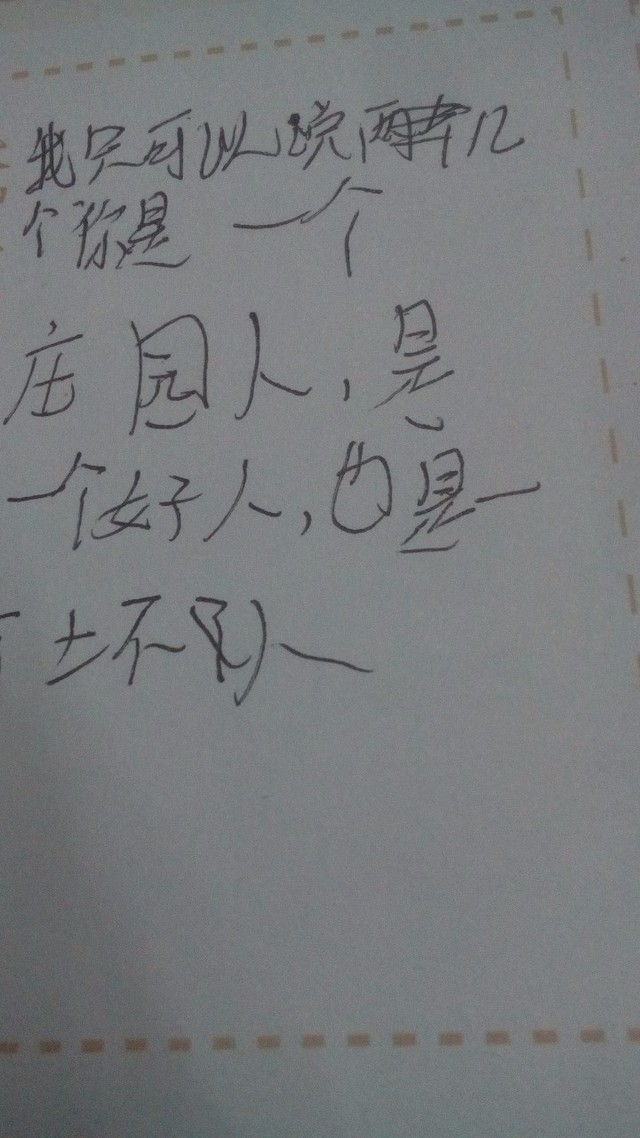 我只可以说两字几
个你是一个
庄园人，是
一个好人，也是一
坏人